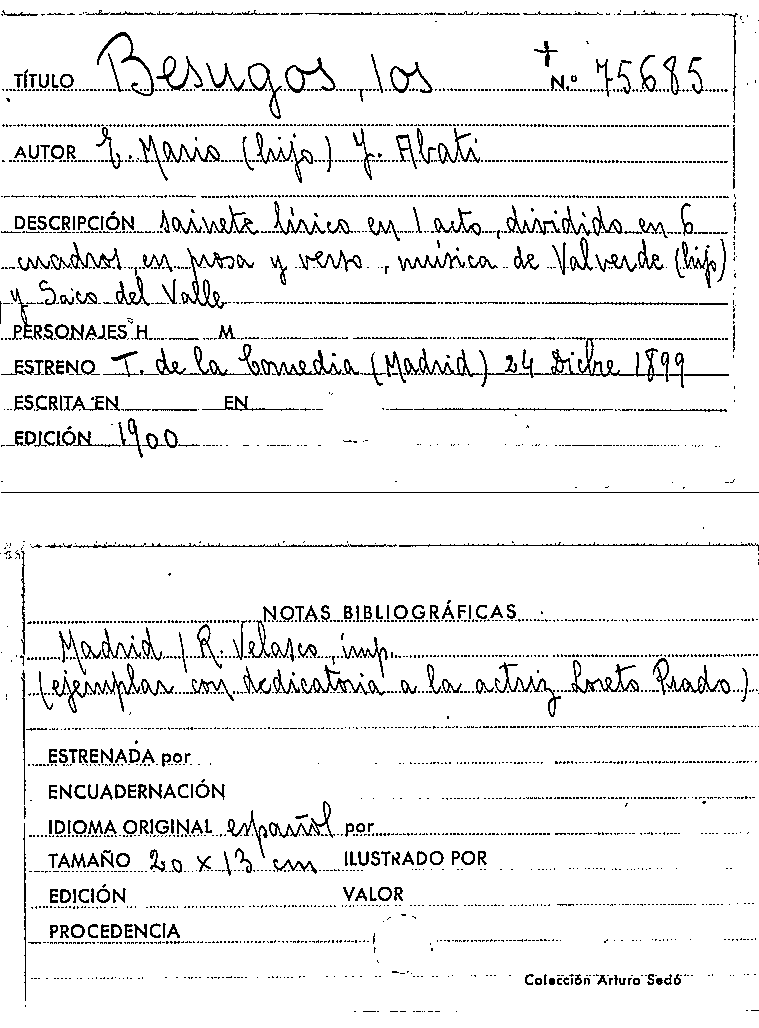 TÍTULO Besugos, los + N.º 75685
AUTOR E. Mario (hijo) J. Abati
DESCRIPCIÓN sainete lírico en 1 acto, dividido en 6
cuadros, en prosa y verso, música de Valverde (hijo)
y Saco del Valle
PERSONAJES H M
ESTRENO T. de la Comedia (Madrid) 24 Dicbre 1899
ESCRITA EN EN
EDICIÓN 1900
NOTAS BIBLIOGRÁFICAS
Madrid / R. Velasco, imp.
(ejemplar con dedicatoria a la actriz Loreto Prado)
ESTRENADA por
ENCUADERNACIÓN
IDIOMA ORIGINAL español por
TAMAÑO 20 x 13 cm ILUSTRADO POR
EDICIÓN VALOR
PROCEDENCIA
Colección Arturo Sedó